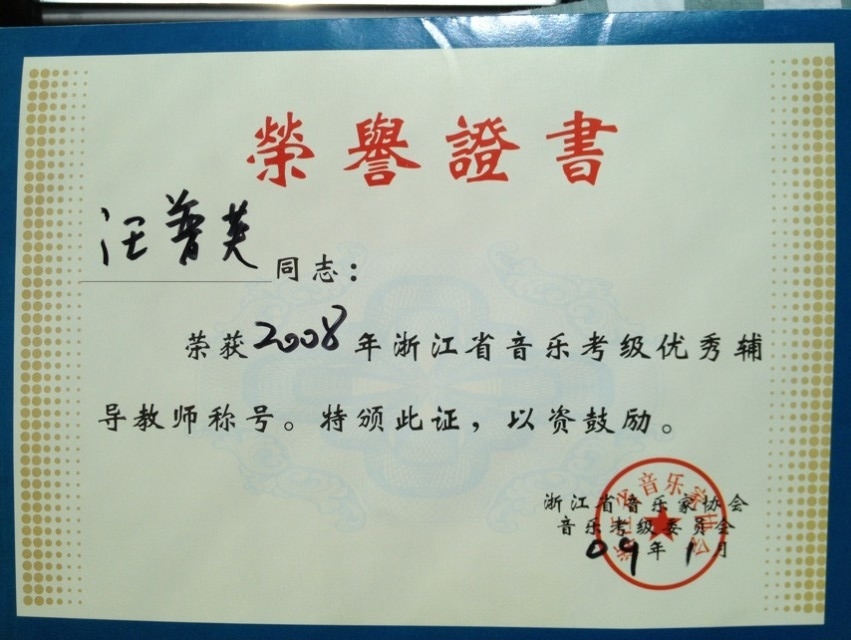 榮譽證書
汪普芙同志：
荣获2008年浙江省音乐考级优秀辅
导教师称号。特颁此证，以资鼓励。
浙江省音乐家协会
音乐考级委员会
09年1月